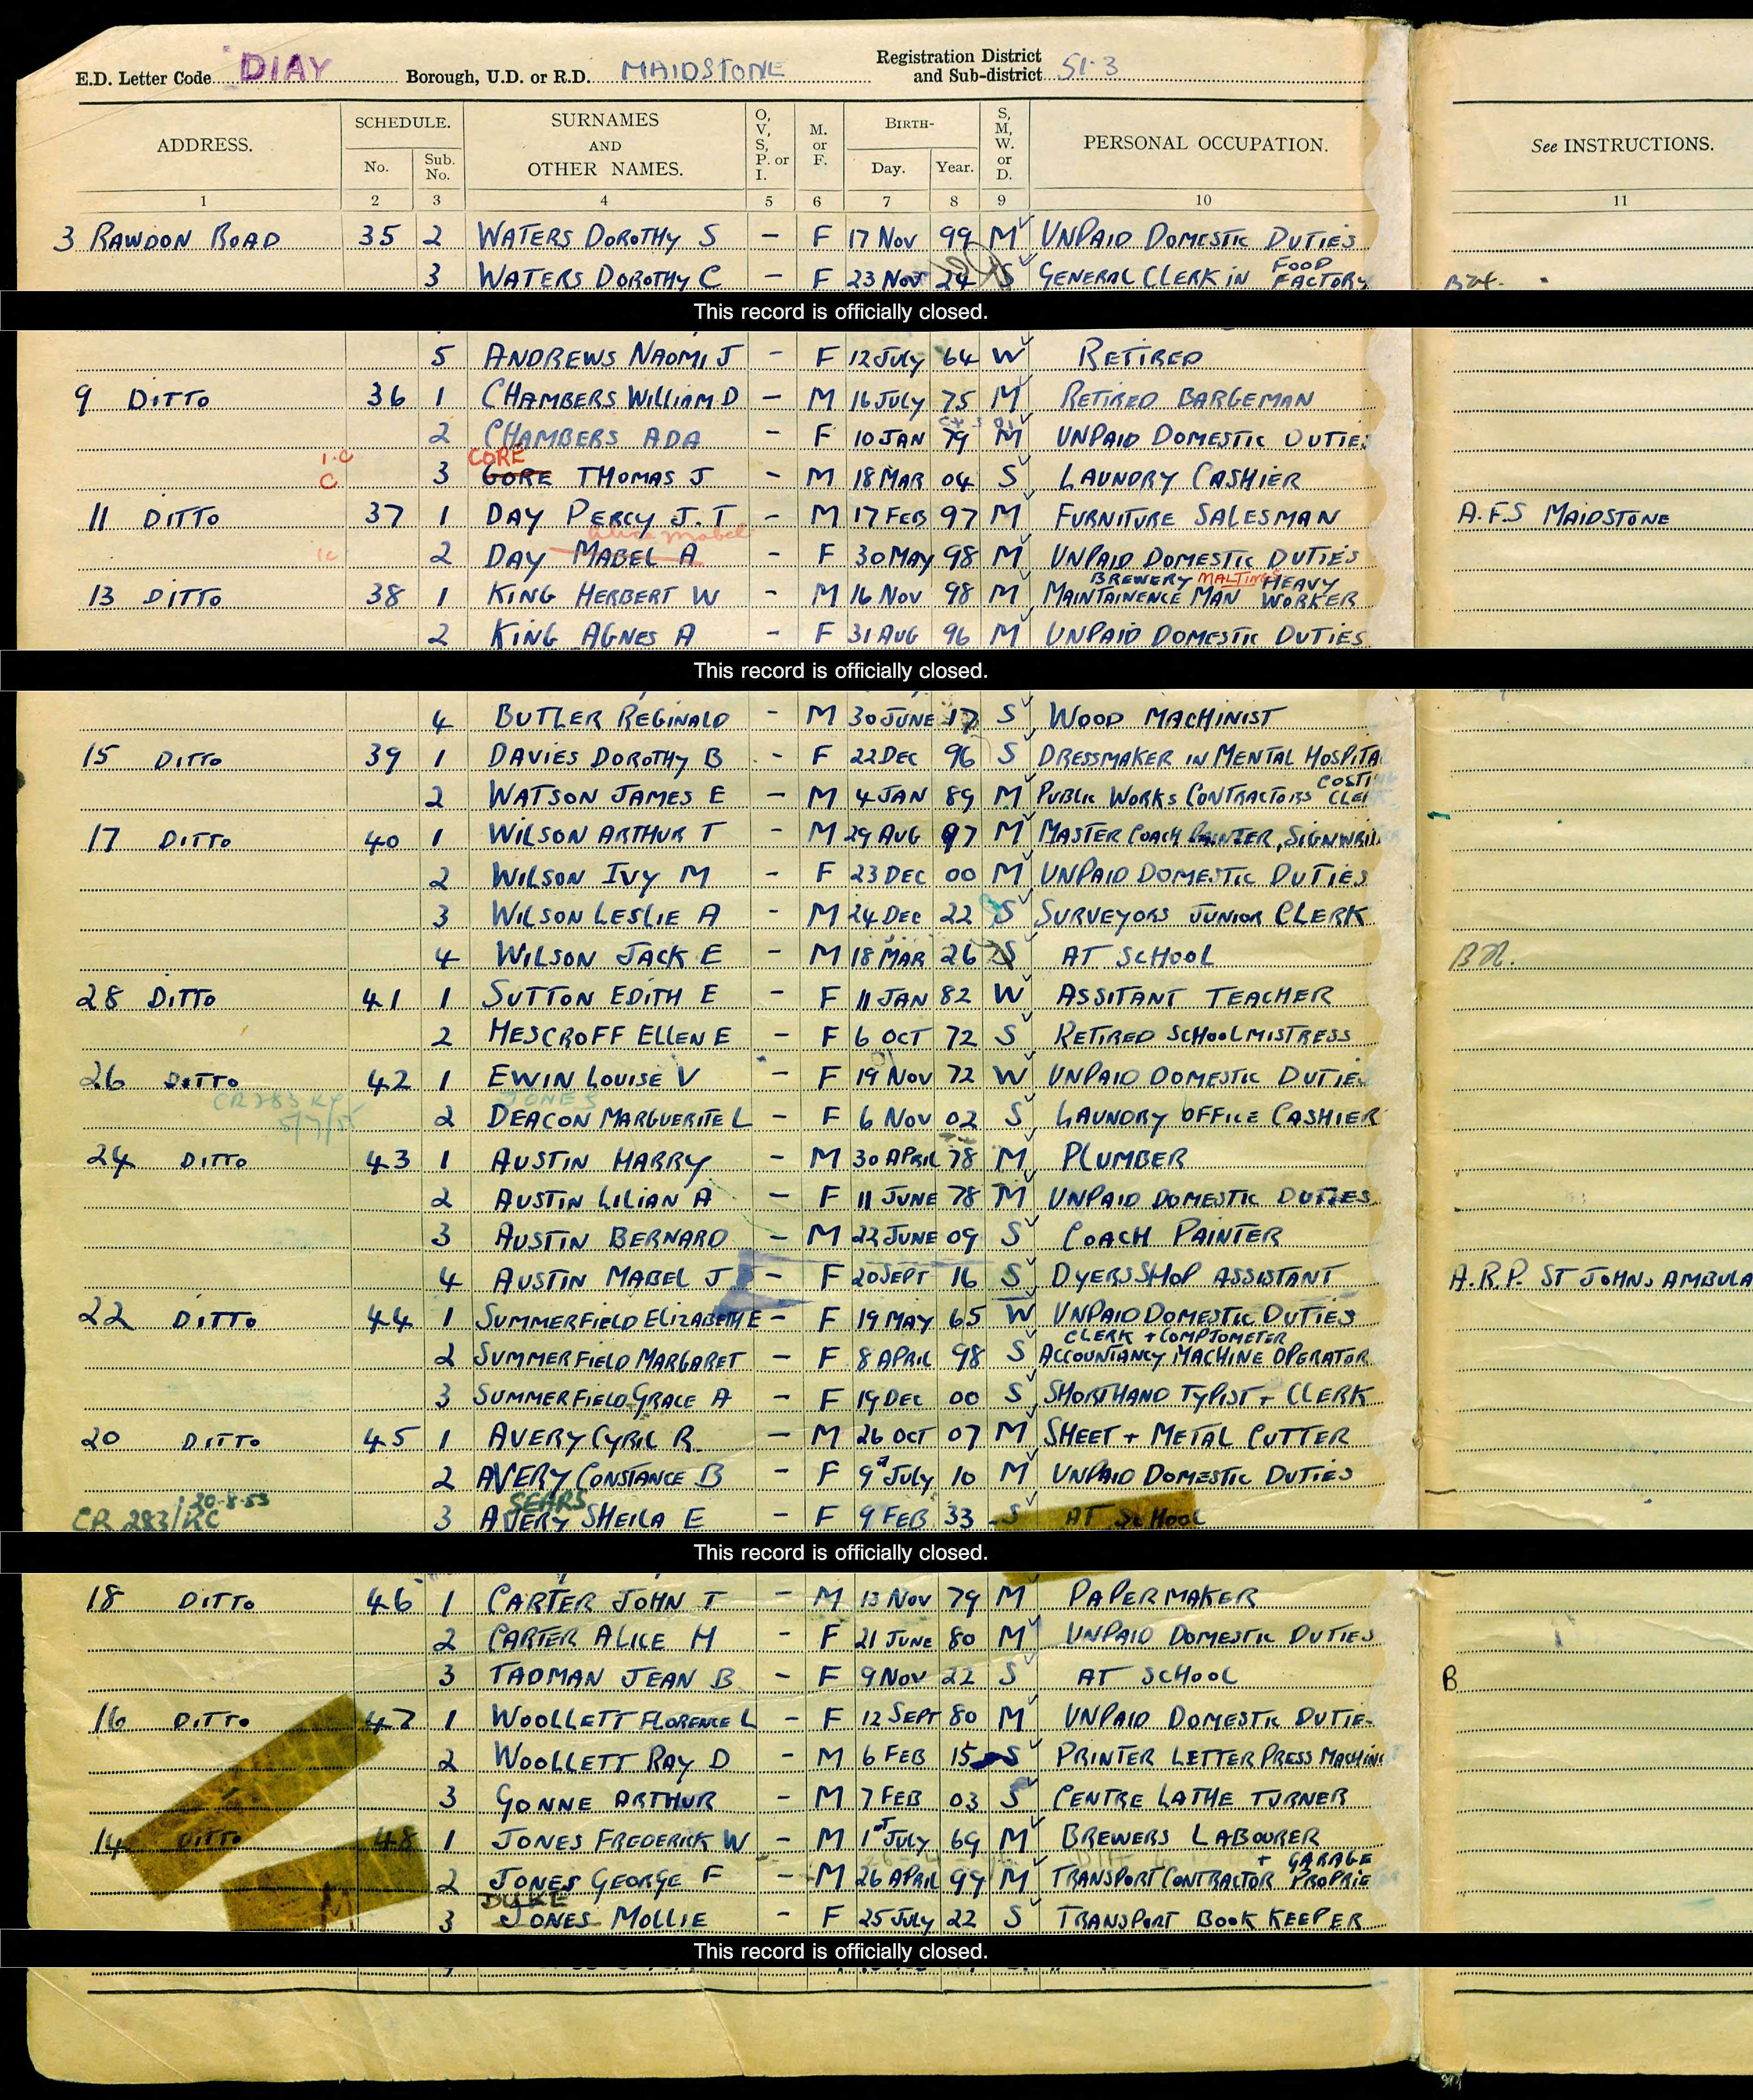 E.D. Letter Code DIAY Borough, U.D. or R.D. MAIDSTONE Registration District and Sub-district 51.3
ADDRESS. SCHEDULE. No. Sub. No. SURNAMES AND OTHER NAMES. O, V, S, P. or I. M. or F. BIRTH- Day. Year. S, M, W. or D. PERSONAL OCCUPATION. See INSTRUCTIONS.
1 2 3 4 5 6 7 8 9 10 11
3 RAWDON ROAD 35 2 WATERS DOROTHY S - F 17 NOV 99 M UNPAID DOMESTIC DUTIES
3 WATERS DOROTHY C - F 23 NOV 24 S GENERAL CLERK IN FOOD FACTORY
This record is officially closed.
5 ANDREWS NAOMI J - F 12 JULY 64 W RETIRED
9 DITTO 36 1 CHAMBERS WILLIAM D - M 16 JULY 75 M RETIRED BARGEMAN
2 CHAMBERS ADA - F 10 JAN 79 M UNPAID DOMESTIC DUTIES
1.C C CORE
3 GORE THOMAS J - M 18 MAR 04 S LAUNDRY CASHIER
11 DITTO 37 1 DAY PERCY J.T - M 17 FEB 97 M FURNITURE SALESMAN A.F.S MAIDSTONE
Alice Mabel
1c 2 DAY MABEL A - F 30 MAY 98 M UNPAID DOMESTIC DUTIES
BREWERY MALTINGS HEAVY
13 DITTO 38 1 KING HERBERT W - M 16 NOV 98 M MAINTAINENCE MAN WORKER
2 KING AGNES A - F 31 AUG 96 M UNPAID DOMESTIC DUTIES
This record is officially closed.
4 BUTLER REGINALD - M 30 JUNE 17 S WOOD MACHINIST
15 DITTO 39 1 DAVIES DOROTHY B - F 22 DEC 96 S DRESSMAKER IN MENTAL HOSPITA
2 WATSON JAMES E - M 4 JAN 89 M PUBLIC WORKS CONTRACTORS COSTI CLE
17 DITTO 40 1 WILSON ARTHUR T - M 29 AUG 97 M MASTER COACH PAINTER, SIGNWRI
2 WILSON IVY M - F 23 DEC 00 M UNPAID DOMESTIC DUTIES
3 WILSON LESLIE A - M 24 DEC 22 S SURVEYORS JUNIOR CLERK
4 WILSON JACK E - M 18 MAR 26 S AT SCHOOL
28 DITTO 41 1 SUTTON EDITH E - F 11 JAN 82 W ASSITANT TEACHER
2 MESCROFF ELLEN E - F 6 OCT 72 S RETIRED SCHOOLMISTRESS
26 DITTO 42 1 EWIN LOUISE V - F 19 NOV 72 W UNPAID DOMESTIC DUTIES
CR 283 JONES
2 DEACON MARGUERITE L - F 6 NOV 02 S LAUNDRY OFFICE CASHIER
24 DITTO 43 1 AUSTIN HARRY - M 30 APRIL 78 M PLUMBER
2 AUSTIN LILIAN A - F 11 JUNE 78 M UNPAID DOMESTIC DUTIES
3 AUSTIN BERNARD - M 22 JUNE 09 S COACH PAINTER
4 AUSTIN MABEL J - F 20 SEPT 16 S DYERS SHOP ASSISTANT A.R.P. ST JOHNS AMBULA
22 DITTO 44 1 SUMMERFIELD ELIZABETH E - F 19 MAY 65 W UNPAID DOMESTIC DUTIES
CLERK + COMPTOMETER
2 SUMMERFIELD MARGARET - F 8 APRIL 98 S ACCOUNTANCY MACHINE OPERATOR
3 SUMMERFIELD GRACE A - F 19 DEC 00 S SHORTHAND TYPIST + CLERK
20 DITTO 45 1 AVERY CYRIL R. - M 26 OCT 07 M SHEET + METAL CUTTER
2 AVERY CONSTANCE B - F 9 JULY 10 M UNPAID DOMESTIC DUTIES
20-8-53 SEARS
CR 283/RC 3 AVERY SHEILA E - F 9 FEB 33 S AT SCHOOL
This record is officially closed.
18 DITTO 46 1 CARTER JOHN T - M 13 NOV 79 M PAPERMAKER
2 CARTER ALICE H - F 21 JUNE 80 M UNPAID DOMESTIC DUTIES
3 TADMAN JEAN B - F 9 NOV 22 S AT SCHOOL B
16 DITTO 47 1 WOOLLETT FLORENCE L - F 12 SEPT 80 M UNPAID DOMESTIC DUTIE
2 WOOLLETT RAY D - M 6 FEB 15 S PRINTER LETTER PRESS MACHIN
3 GONNE ARTHUR - M 7 FEB 03 S CENTRE LATHE TURNER
14 DITTO 48 1 JONES FREDERICK W - M 1st JULY 69 M BREWERS LABOURER
+ GARAGE
2 JONES GEORGE F - M 26 APRIL 99 M TRANSPORT CONTRACTOR PROPRIE
DUKE
3 JONES MOLLIE - F 25 JULY 22 S TRANSPORT BOOK KEEPER
This record is officially closed.